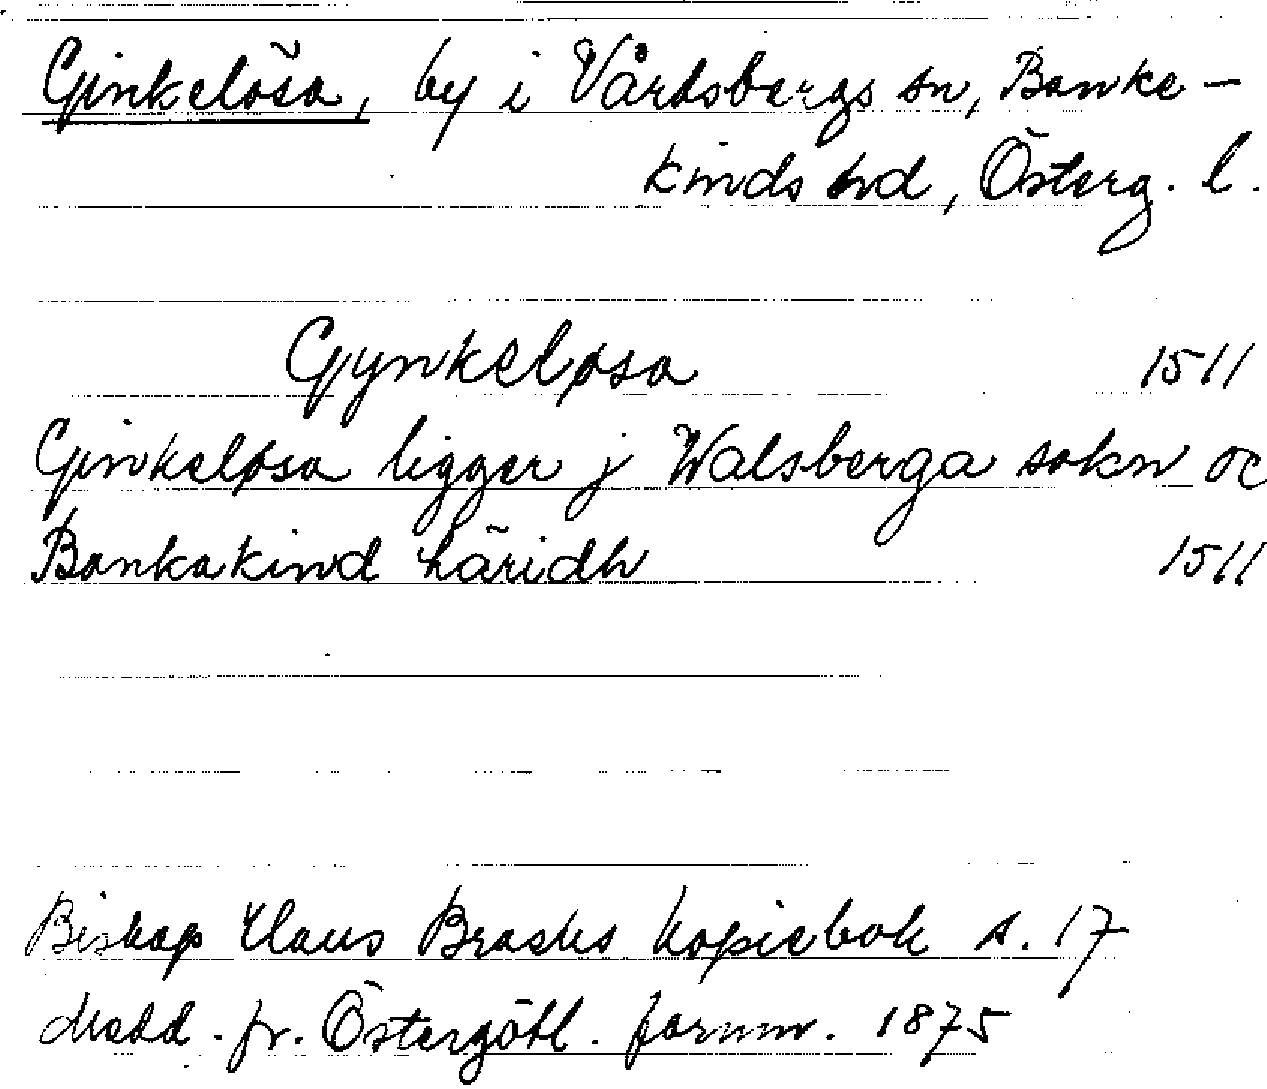 Ginkelösa, by i Vårdsbergs sn, Banke-
kinds hd, Österg. l.
Gynkeløsa 1511
Ginkeløsa ligger j Walsberga sokn oc
Bankakind häridh 1511
Biskop Claus Brasks kopiebok s. 17
Medd. fr. Östergötl. fornm. 1875